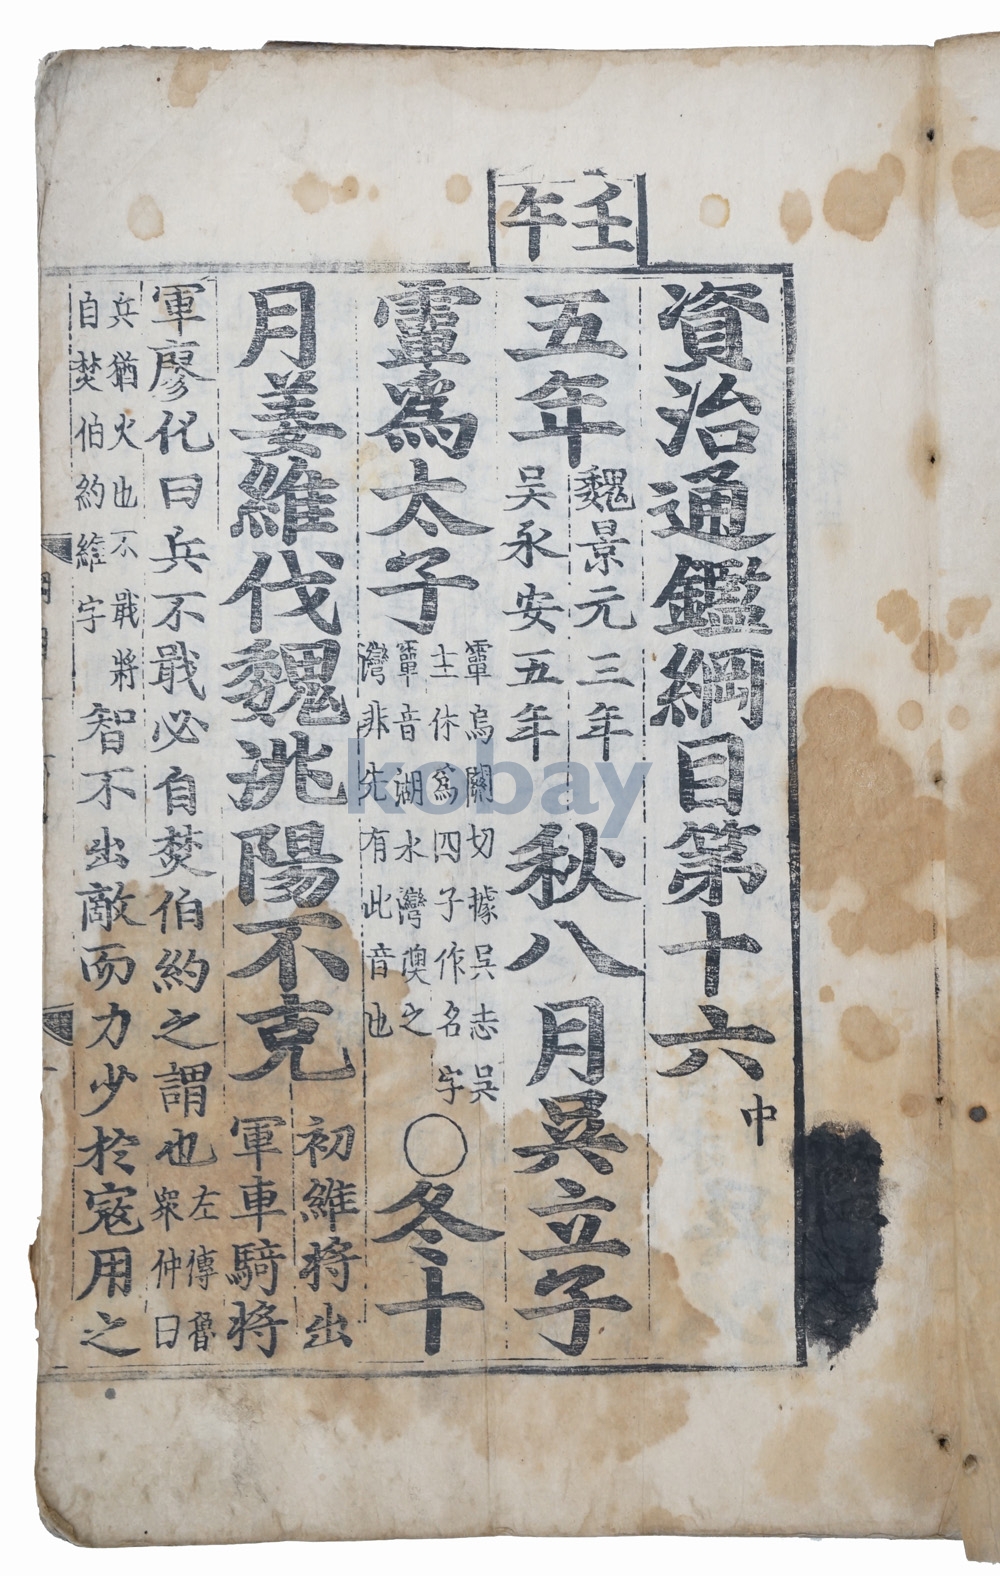 壬
午
資治通鑑綱目第十六中
五年魏景元三年吳永安五年秋八月吳立子
𩅦爲太子𩅦烏關切據吳志吳主休爲四子作名字𩅦音湖水灣澳之灣非先有此音也○冬十
月姜維伐魏洮陽不克初維將出軍車騎將
軍廖化曰兵不戢必自焚伯約之謂也左傳魯衆仲曰
兵猶火也不戢將自焚伯約維字智不出敵而力少於寇用之
kobay